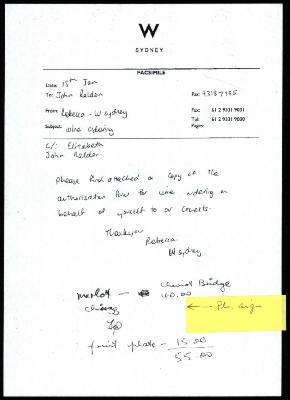 W
SYDNEY
FACSIMILE
Date: 15th Jan
To: John Relden Fax: 93187155
From: Rebecca - W Sydney Fax: 61 2 9331 9031
Tel: 61 2 9331 9000
Subject: wine ordering Pages:
c/- Elizabeth
John Relden.
Please find attached a copy of the
authorisation form for wine ordering on
behalf of yourself to our guests.
Thankyou
Rebecca
W Sydney
Bridge
merlot - 40.00
fruit plate - 15.00
55.00